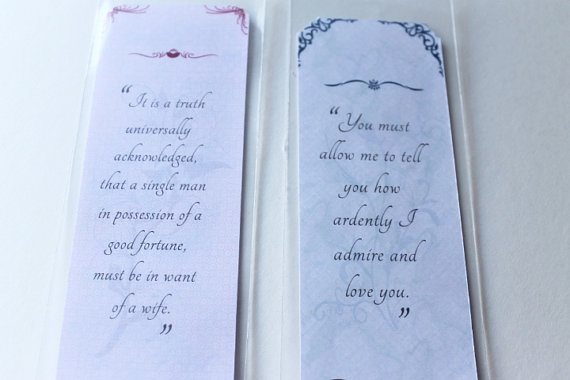 “It is a truth
universally
acknowledged,
that a single man
in possession of a
good fortune,
must be in want
of a wife.
”
“You must
allow me to tell
you how
ardently I
admire and
love you.
”